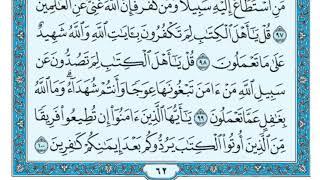 مَنِ ٱسْتَطَاعَ إِلَيْهِ سَبِيلًا ۚ وَمَن كَفَرَ فَإِنَّ ٱللَّهَ غَنِىٌّ عَنِ ٱلْعَٰلَمِينَ
٩٧ قُلْ يَٰٓأَهْلَ ٱلْكِتَٰبِ لِمَ تَكْفُرُونَ بِـَٔايَٰتِ ٱللَّهِ وَٱللَّهُ شَهِيدٌ
عَلَىٰ مَا تَعْمَلُونَ ٩٨ قُلْ يَٰٓأَهْلَ ٱلْكِتَٰبِ لِمَ تَصُدُّونَ عَن
سَبِيلِ ٱللَّهِ مَنْ ءَامَنَ تَبْغُونَهَا عِوَجًا وَأَنتُمْ شُهَدَآءُ ۗ وَمَا ٱللَّهُ
بِغَٰفِلٍ عَمَّا تَعْمَلُونَ ٩٩ يَٰٓأَيُّهَا ٱلَّذِينَ ءَامَنُوٓا۟ إِن تُطِيعُوا۟ فَرِيقًا
مِّنَ ٱلَّذِينَ أُوتُوا۟ ٱلْكِتَٰبَ يَرُدُّوكُم بَعْدَ إِيمَٰنِكُمْ كَٰفِرِينَ ١٠٠
٦٢